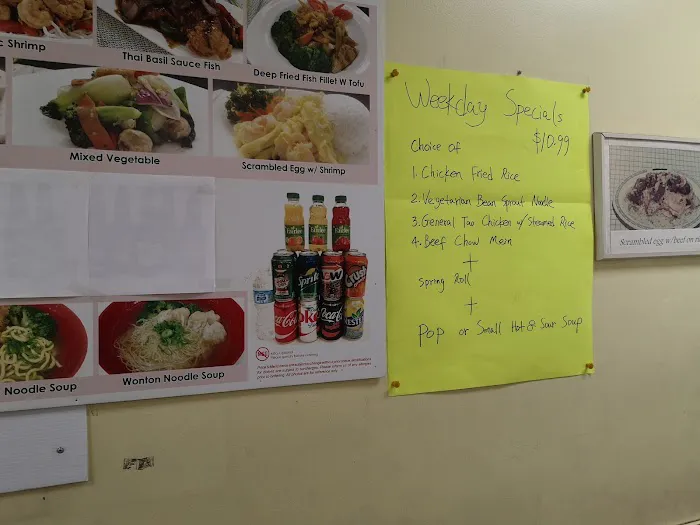 c Shrimp
Thai Basil Sauce Fish
Deep Fried Fish Fillet W Tofu
Mixed Vegetable
Scrambled Egg w/ Shrimp
Noodle Soup
Wonton Noodle Soup
Sprite
A&W
Crush
Coca-Cola
Coke
Weekday Specials
$10.99
Choice of
1. Chicken Fried Rice
2. Vegetarian Bean Sprout Noodle
3. General Tao Chicken w/ Steamed Rice
4. Beef Chow Mein
+
Spring Roll
+
Pop or Small Hot & Sour Soup
Scrambled egg w/beef on